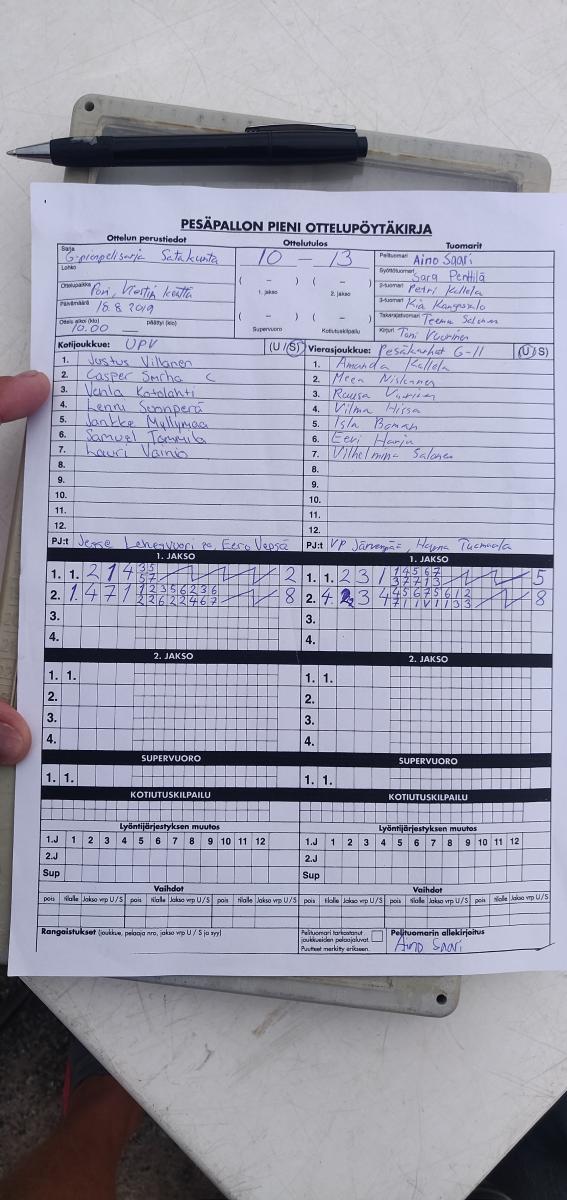 PESÄPALLON PIENI OTTELUPÖYTÄKIRJA
Ottelun perustiedot
Ottelutulos
Tuomarit
Sarja G-pienpelisarja Satakunta
Lohko
Ottelupaikka Pori, Viertin kenttä
Päivämäärä 18.8 2019
Ottelu alkoi (klo) 10.00 päättyi (klo)
10 - 13
( - ) ( - )
1. jakso 2. jakso
( - ) ( - )
Supervuoro Kotiutuskilpailu
Pelituomari Aino Saari
Syöttötuomari Sara Penttilä
2-tuomari Petri Kallela
3-tuomari Kia Kangassalo
Takarajatuomari Teemu Salonen
Kirjuri Toni Vuorinen
Kotijoukkue: UPV (U / S)
1. Justus Villanen
2. Casper Smrha C
3. Venla Kotolahti
4. Lenni Sunnperä
5. Jantke Myllymaa
6. Samuel Tammila
7. Lauri Vainio
8.
9.
10.
11.
12.
PJ:t Jesse Lehervuori, Eero Vepsä
Vierasjoukkue: Pesäkarhut G-11 (U / S)
1. Amanda Kallela
2. Meea Niskanen
3. Ruusa
4. Vilma Hissa
5. Isla Boman
6. Eevi Harju
7. Vilhelmina Salonen
8.
9.
10.
11.
12.
PJ:t VP Järvenpää, Hanna Tuomola
1. JAKSO
1. 1. 2 1 4 3 5 2
5 7
2. 1. 4 7 1 1 2 3 5 6 2 3 6 8
2 2 6 2 2 4 6 7
3.
4.
1. JAKSO
1. 1. 2 3 1 1 4 5 6 7 5
3 7 7 1 3
2. 4. 2 3 4 4 5 6 7 5 6 1 2 8
7 1 1 V 1 1 3 3
3.
4.
2. JAKSO
1. 1.
2.
3.
4.
2. JAKSO
1. 1.
2.
3.
4.
SUPERVUORO
1. 1.
SUPERVUORO
1. 1.
KOTIUTUSKILPAILU
KOTIUTUSKILPAILU
Lyöntijärjestyksen muutos
1.J 1 2 3 4 5 6 7 8 9 10 11 12
2.J
Sup
Lyöntijärjestyksen muutos
1.J 1 2 3 4 5 6 7 8 9 10 11 12
2.J
Sup
Vaihdot
pois tilalle Jakso vrp U / S pois tilalle Jakso vrp U / S pois tilalle Jakso vrp U / S
Vaihdot
pois tilalle Jakso vrp U / S pois tilalle Jakso vrp U / S pois tilalle Jakso vrp U / S
Rangaistukset (joukkue, pelaaja nro, jakso vrp U / S ja syy)
Pelituomari tarkastanut
joukkueiden pelaajaluvat.
Puutteet merkitty erikseen.
Pelituomarin allekirjoitus
Aino Saari